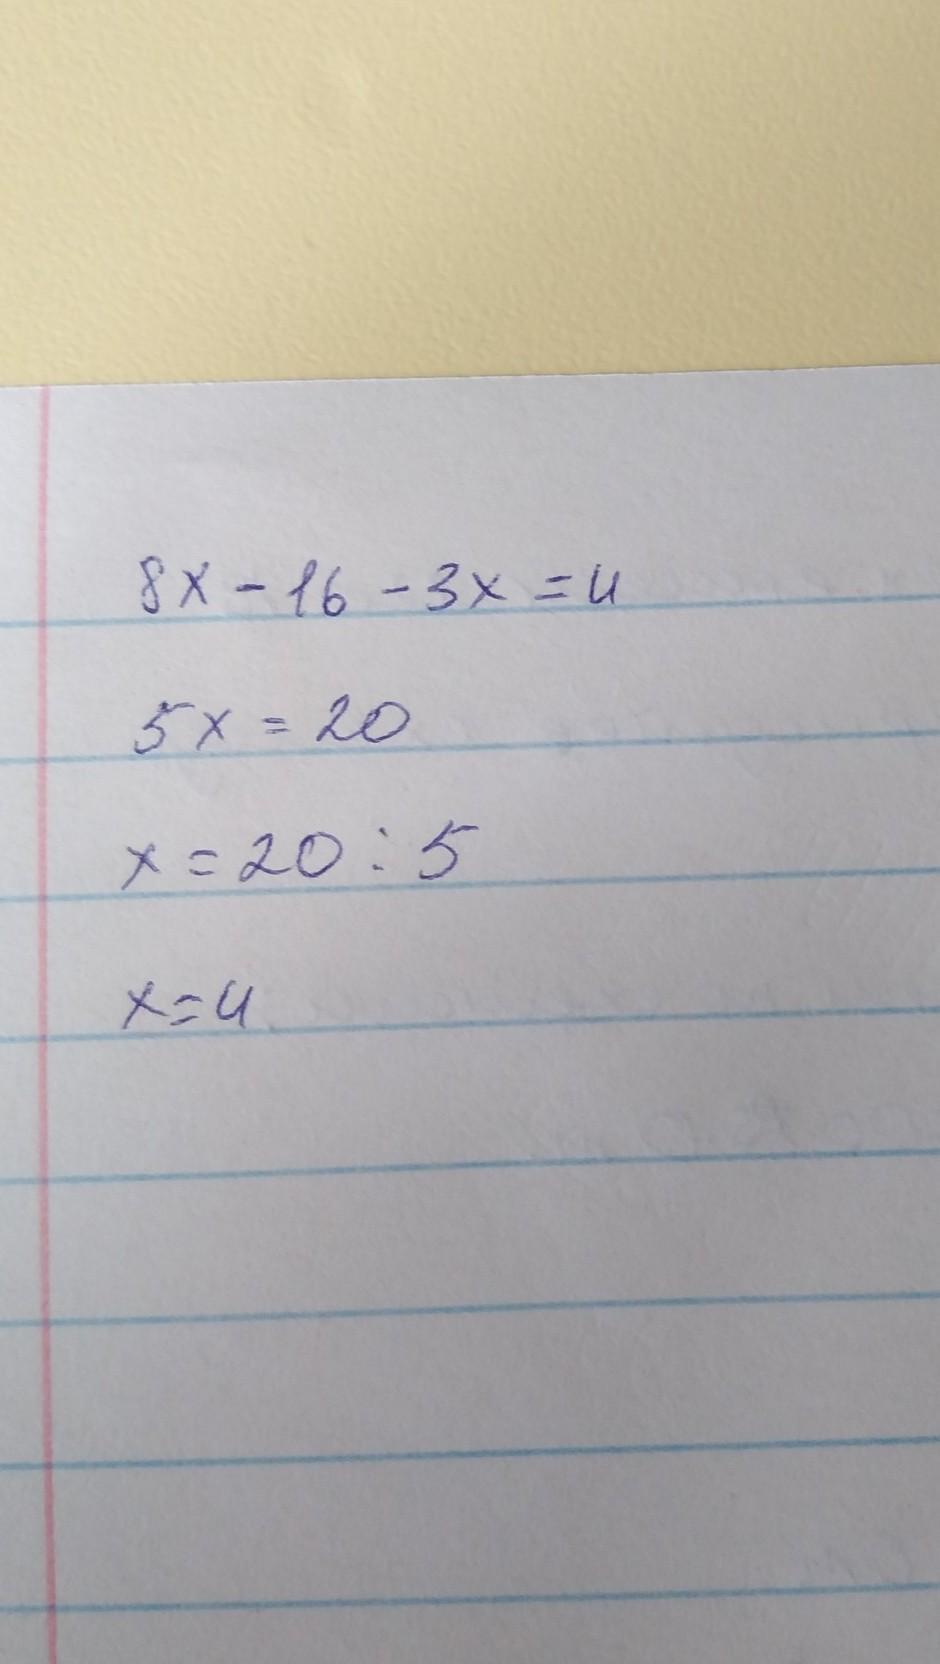 8x - 16 - 3x = 4
5x = 20
x = 20 : 5
x = 4